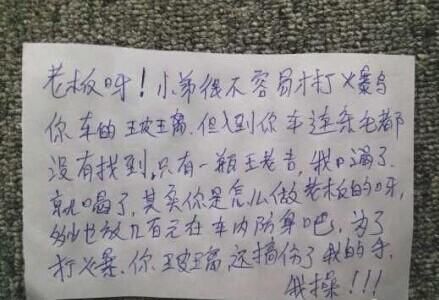 老板呀！小弟很不容易才打火暴鸟
你车的玻王离.但入到你车连条毛都
没有找到,只有一瓶王老吉,我口渴了.
就喝了,其实你是怎么做老板的呀,
多少也放几百元在车内防身吧.为了
打火暴.你玻王离还搞伤了我的手.
我操!!!